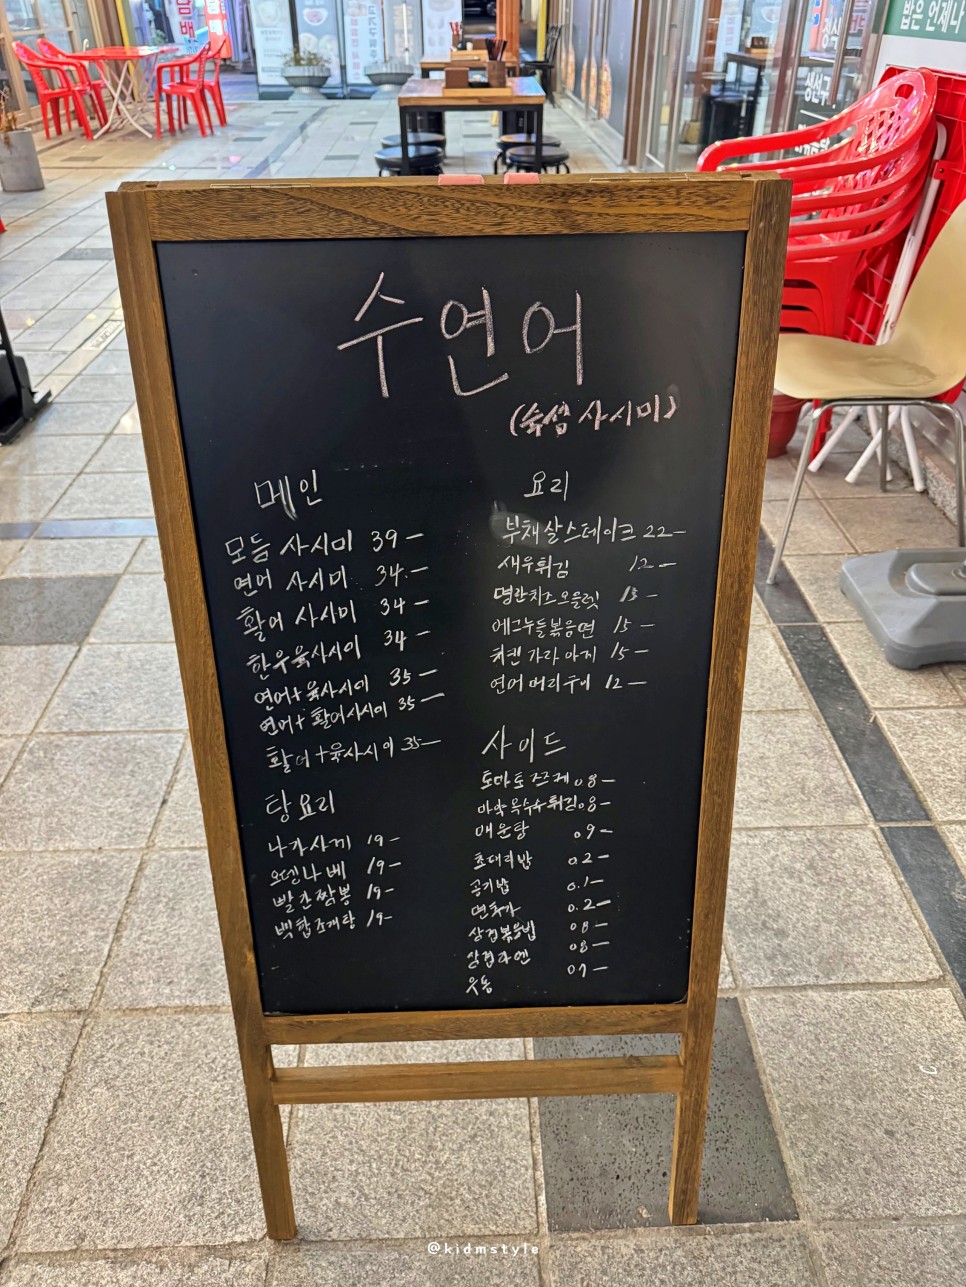 수연어
(숙성 사시미)
메인
모듬 사시미 39-
연어 사시미 34.-
활어 사시미 34-
한우육사시미 34-
연어+육사시미 35-
연어+활어사시미 35-
활어+육사시미 35-
탕요리
나가사끼 19-
오뎅나베 19-
빨간짬뽕 19-
백합조개탕 19-
요리
부채살스테이크 22-
새우튀김 12-
명란치즈오믈렛 13-
에그누들볶음면 15-
치킨 가라아게 15-
연어머리구이 12-
사이드
토마토 08-
마약옥수수튀김 08-
매운탕 09-
초대리밥 02-
공기밥 0.1-
면추가 0.2-
삼겹볶음밥 08-
삼겹라멘 08-
우동 07-
밥은 언제나
@kidmstyle